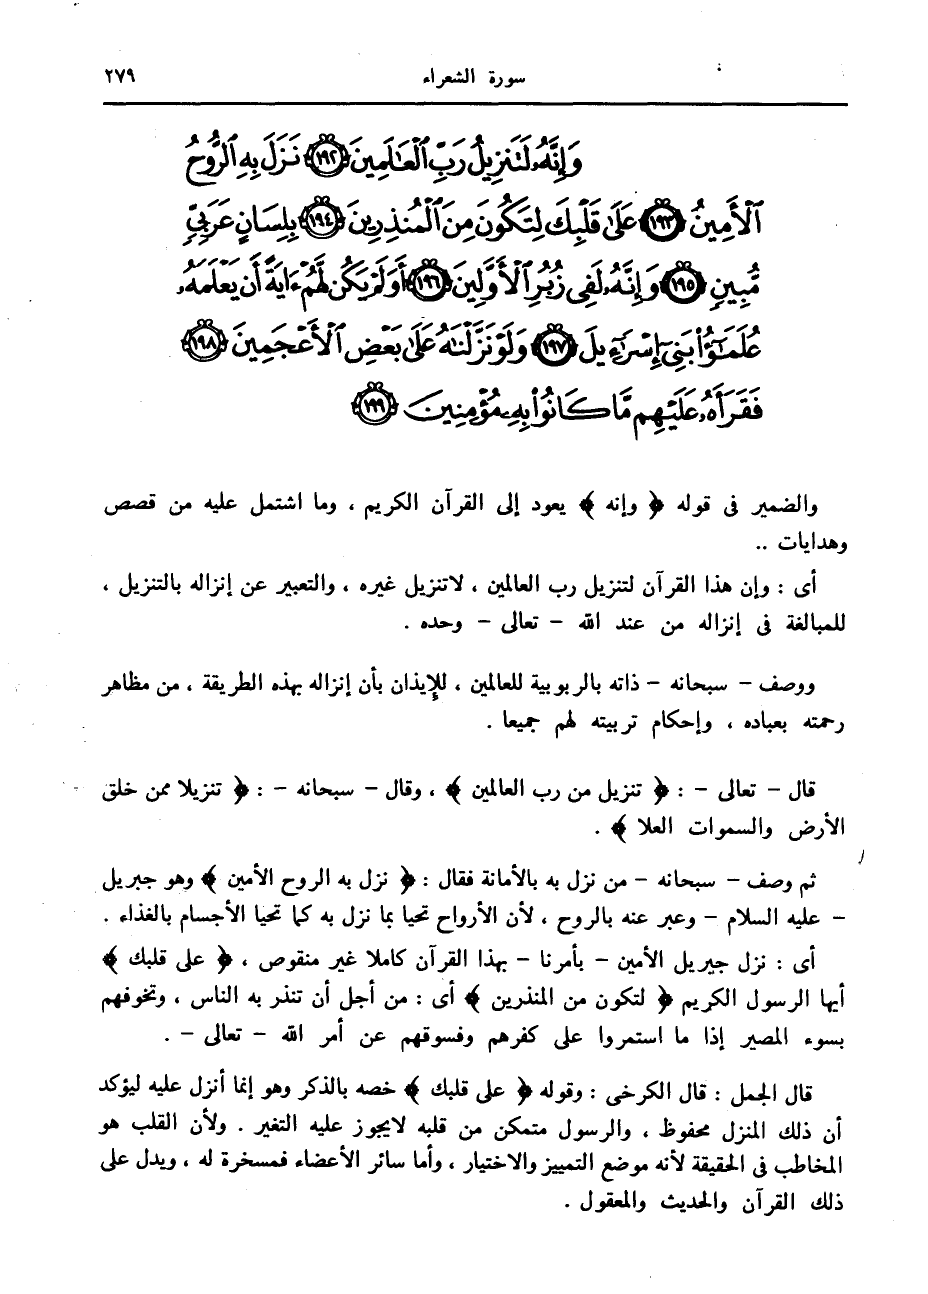 سورة الشعراء ٢٧٩
وَإِنَّهُۥ لَتَنزِيلُ رَبِّ ٱلْعَٰلَمِينَ ١٩٢ نَزَلَ بِهِ ٱلرُّوحُ
ٱلْأَمِينُ ١٩٣ عَلَىٰ قَلْبِكَ لِتَكُونَ مِنَ ٱلْمُنذِرِينَ ١٩٤ بِلِسَانٍ عَرَبِيٍّ
مُّبِينٍ ١٩٥ وَإِنَّهُۥ لَفِى زُبُرِ ٱلْأَوَّلِينَ ١٩٦ أَوَلَمْ يَكُن لَّهُمْ ءَايَةً أَن يَعْلَمَهُۥ
عُلَمَٰٓؤُا۟ بَنِىٓ إِسْرَٰٓءِيلَ ١٩٧ وَلَوْ نَزَّلْنَٰهُ عَلَىٰ بَعْضِ ٱلْأَعْجَمِينَ ١٩٨
فَقَرَأَهُۥ عَلَيْهِم مَّا كَانُوا۟ بِهِۦ مُؤْمِنِينَ ١٩٩
والضمير فى قوله ﴿ وإنه ﴾ يعود إلى القرآن الكريم ، وما اشتمل عليه من قصص
وهدايات ..
أى : وإن هذا القرآن لتنزيل رب العالمين ، لاتنزيل غيره ، والتعبير عن إنزاله بالتنزيل ،
للمبالغة فى إنزاله من عند الله – تعالى – وحده .
ووصف – سبحانه – ذاته بالربوبية للعالمين ، للإيذان بأن إنزاله بهذه الطريقة ، من مظاهر
رحمته بعباده ، وإحكام تربيته لهم جميعا .
قال – تعالى – : ﴿ تنزيل من رب العالمين ﴾ ، وقال – سبحانه – : ﴿ تنزيلا ممن خلق
الأرض والسموات العلا ﴾ .
ثم وصف – سبحانه – من نزل به بالأمانة فقال : ﴿ نزل به الروح الأمين ﴾ وهو جبريل
– عليه السلام – وعبر عنه بالروح ، لأن الأرواح تحيا بما نزل به كما تحيا الأجسام بالغذاء .
أى : نزل جبريل الأمين – بأمرنا – بهذا القرآن كاملا غير منقوص ، ﴿ على قلبك ﴾
أيها الرسول الكريم ﴿ لتكون من المنذرين ﴾ أى : من أجل أن تنذر به الناس ، وتخوفهم
بسوء المصير إذا ما استمروا على كفرهم وفسوقهم عن أمر الله – تعالى – .
قال الجمل : قال الكرخى : وقوله ﴿ على قلبك ﴾ خصه بالذكر وهو إنما أنزل عليه ليؤكد
أن ذلك المنزل محفوظ ، والرسول متمكن من قلبه لايجوز عليه التغير . ولأن القلب هو
المخاطب فى الحقيقة لأنه موضع التمييز والاختيار ، وأما سائر الأعضاء فمسخرة له ، ويدل على
ذلك القرآن والحديث والمعقول .